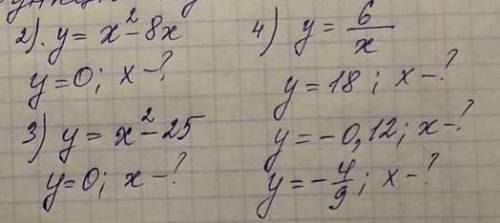 2). y = x² - 8x
y = 0; x - ?
3) y = x² - 25
y = 0; x - ?
4) y = 6/x
y = 18; x - ?
y = -0,12; x - ?
y = -4/9; x - ?